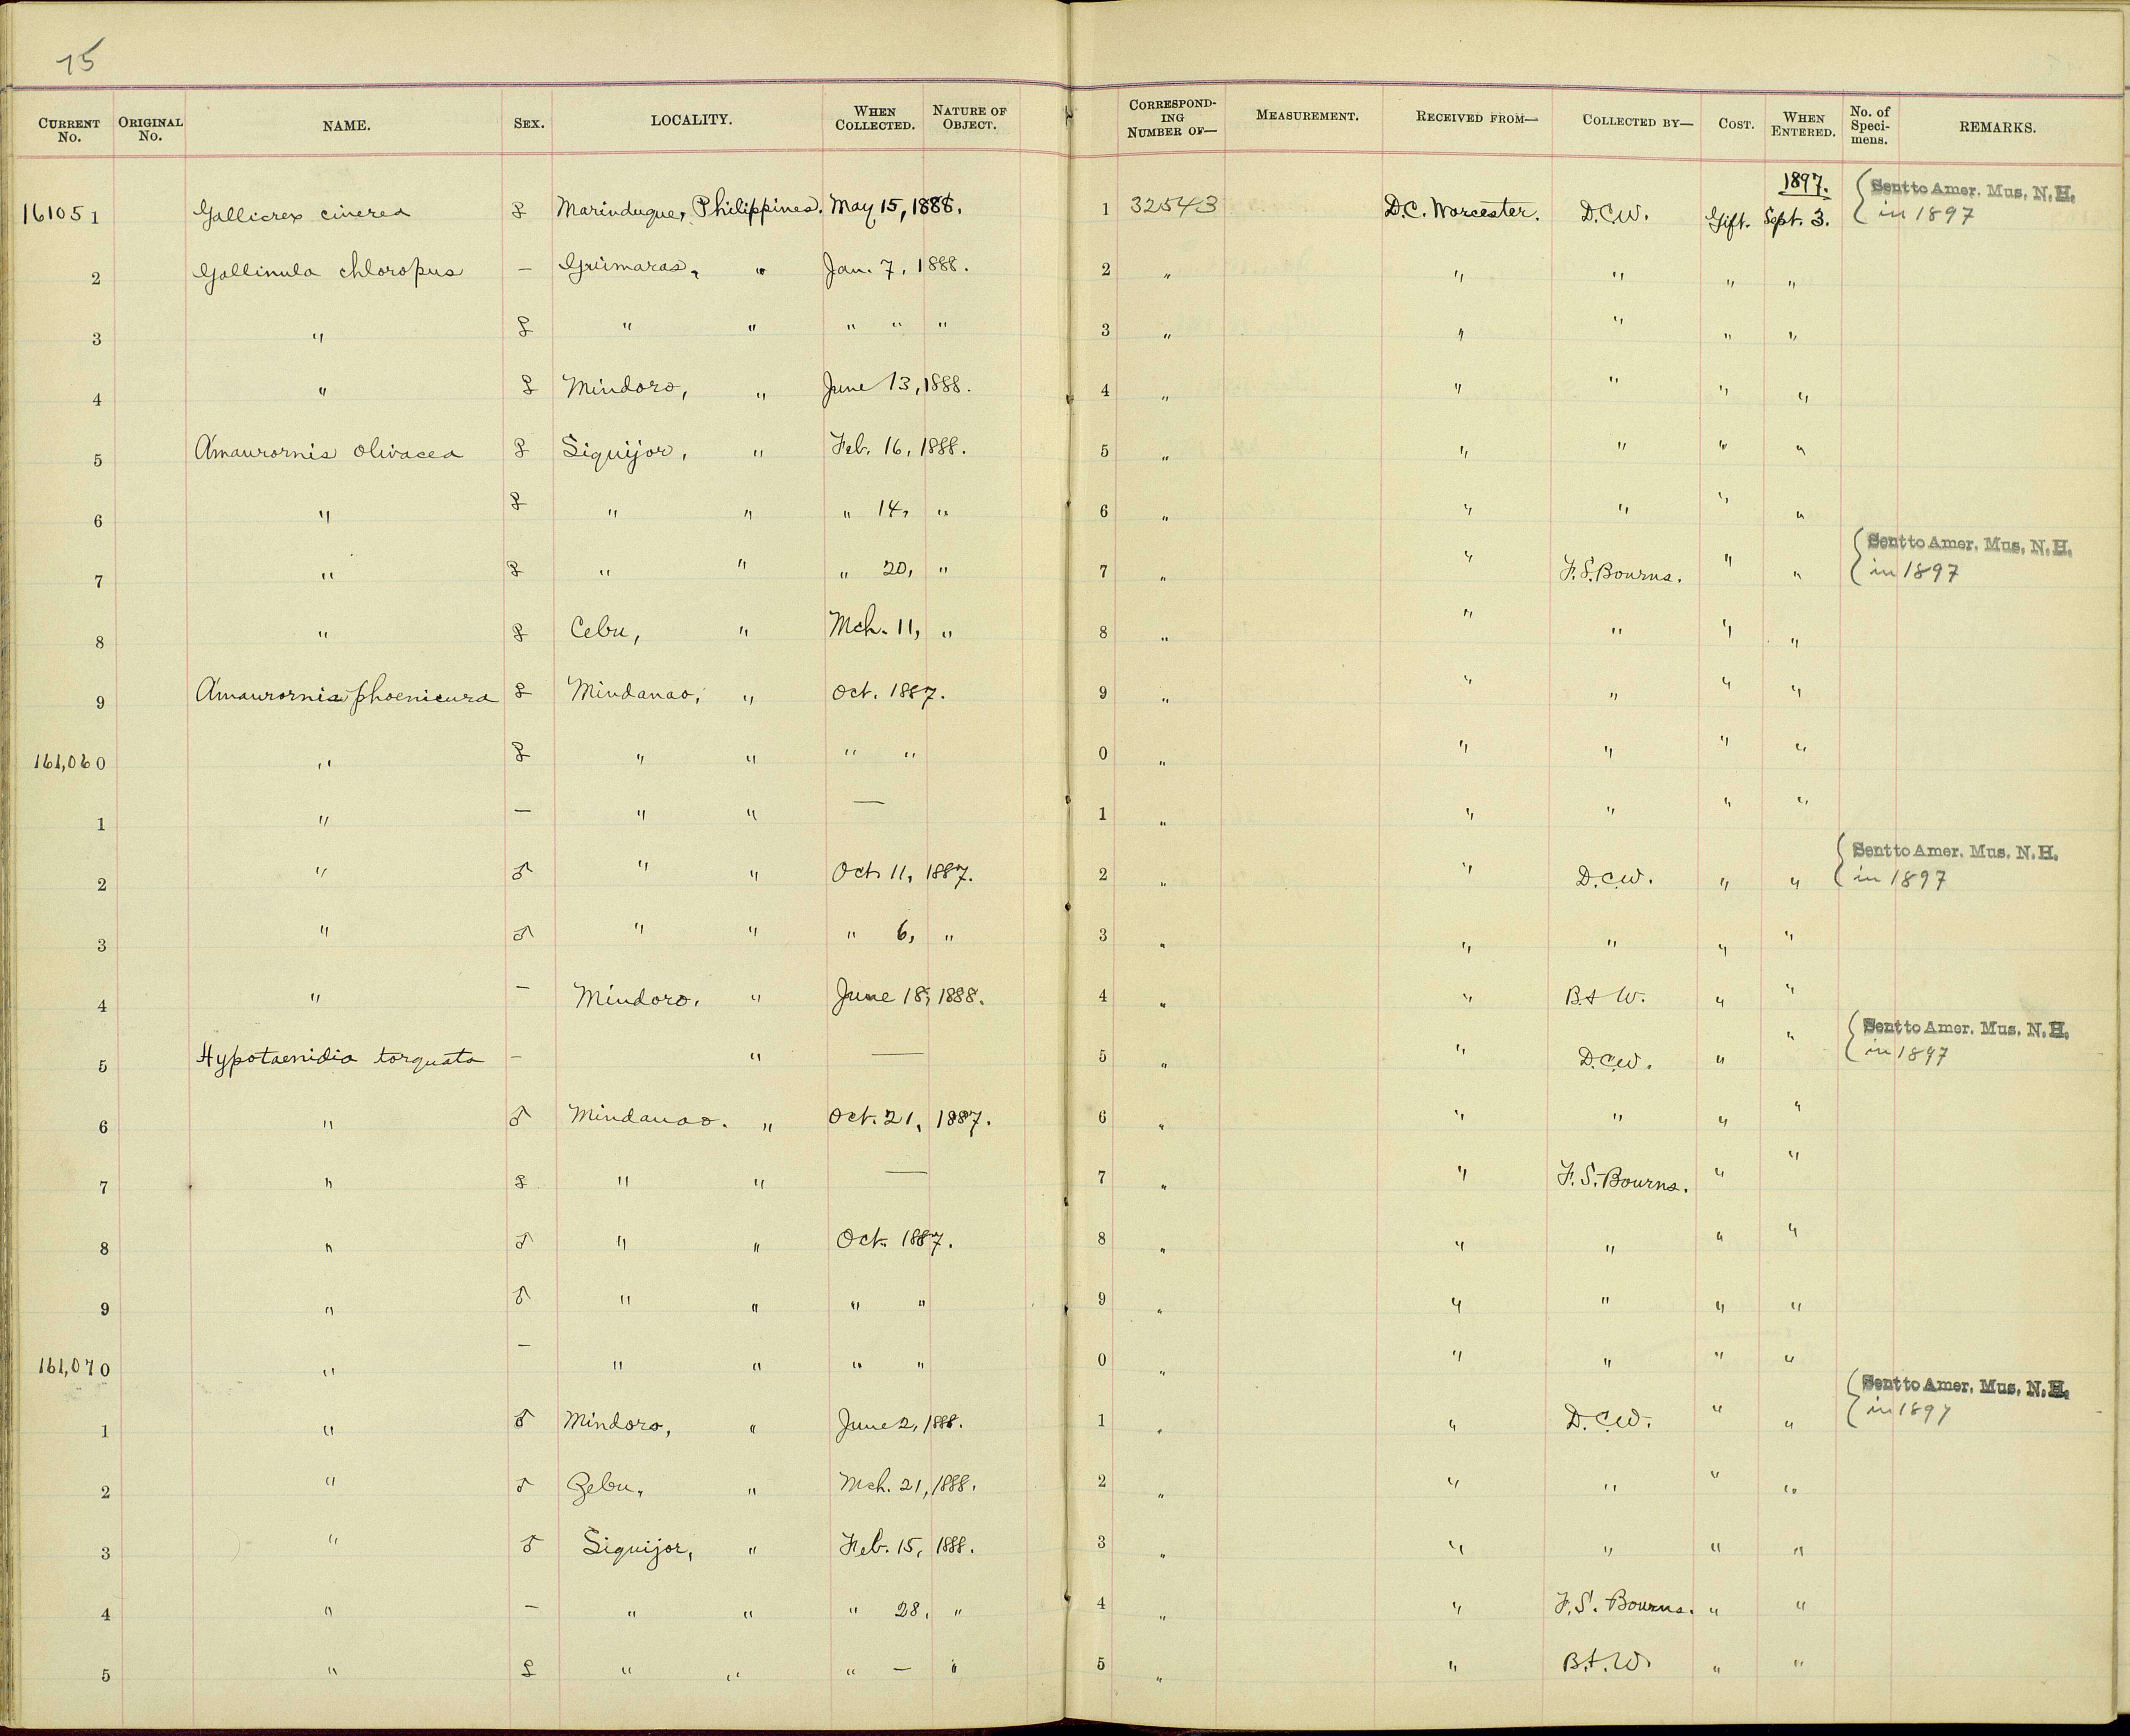 75
CURRENT No. ORIGINAL No. NAME. SEX. LOCALITY. WHEN COLLECTED. NATURE OF OBJECT. CORRESPONDING NUMBER OF— MEASUREMENT. RECEIVED FROM— COLLECTED BY— COST. WHEN ENTERED. No. of Specimens. REMARKS.
1897.
161051 Gallicrex cinerea ♀ Marinduque, Philippines. May 15, 1888. 1 32543 D.C. Worcester. D.C.W. Gift. Sept. 3. Sent to Amer. Mus. N. H. in 1897
2 Gallinula chloropus — Guimaras, " Jan. 7, 1888. 2 " " " " "
3 " ♀ " " " " " 3 " " " " "
4 " ♀ Mindoro, " June 13, 1888. 4 " " " " "
5 Amaurornis olivacea ♀ Siquijor, " Feb. 16, 1888. 5 " " " " "
6 " ♀ " " " 14, " 6 " " " " "
7 " ♀ " " " 20, " 7 " " F.S. Bourns. " " Sent to Amer. Mus. N. H. in 1897
8 " ♀ Cebu, " Mch. 11, " 8 " " " " "
9 Amaurornis phoenicura ♀ Mindanao, " Oct. 1887. 9 " " " " "
161,060 " ♀ " " " " 0 " " " " "
1 " — " " — 1 " " " " "
2 " ♂ " " Oct. 11, 1887. 2 " " D.C.W. " " Sent to Amer. Mus. N. H. in 1897
3 " ♂ " " " 6, " 3 " " " " "
4 " — Mindoro, " June 18, 1888. 4 " " B. & W. " "
5 Hypotaenidia torquata — " — 5 " " D.C.W. " " Sent to Amer. Mus. N. H. in 1897
6 " ♂ Mindanao. " Oct. 21, 1887. 6 " " " " "
7 " ♀ " " — 7 " " F.S. Bourns. " "
8 " ♂ " " Oct. 1887. 8 " " " " "
9 " ♂ " " " " 9 " " " " "
161,070 " — " " " " 0 " " " " "
1 " ♂ Mindoro, " June 2, 1888. 1 " " D.C.W. " " Sent to Amer. Mus. N. H. in 1897
2 " ♂ Zebu, " Mch. 21, 1888. 2 " " " " "
3 " ♂ Siquijor, " Feb. 15, 1888. 3 " " " " "
4 " — " " " 28, " 4 " " F.S. Bourns. " "
5 " ♀ " " " — " 5 " " B. & W. " "